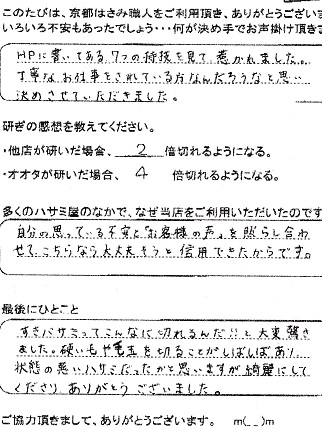 このたびは、京都はさみ職人をご利用頂き、ありがとうござい
いろいろ不安もあったでしょう・・・何が決め手でお声掛け頂き
HPに書いてある7つの特技を見て惹かれました。
丁寧なお仕事をされている方なんだろうなと思い
決めさせていただきました。
研ぎの感想を教えてください。
・他店が研いだ場合、 2 倍切れるようになる。
・オオタが研いだ場合、 4 倍切れるようになる。
多くのハサミ屋のなかで、なぜ当店をご利用いただいたのです
自分の思っている不安と「お客様の声」を照らし合わ
せて、こちらなら大丈夫そうと信用できたからです。
最後にひとこと
すきバサミってこんなに切れるんだ!!と大変驚き
ました。硬い毛や毛玉を切ることがしばしばあり
状態の悪いハサミだったかと思いますが綺麗にして
くださり、ありがとうございました。
ご協力頂きまして、ありがとうございます。 m(_ _)m